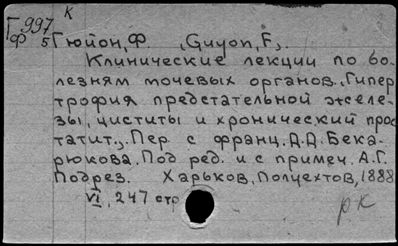 К
Г 997
Ф 5
Гюйон, Ф. (Guyon, F.).
Клинические лекции по бо-
лезням мочевых органов. (Гипер
трофия предстательной желе-
зы, циститы и хронический прос
татит.). Пер. с франц. Д.Д. Бека-
рюкова. Под ред. и с примеч. А.Г.
Подрез. Харьков, Полуехтов, 1888
VI, 247 стр
рк